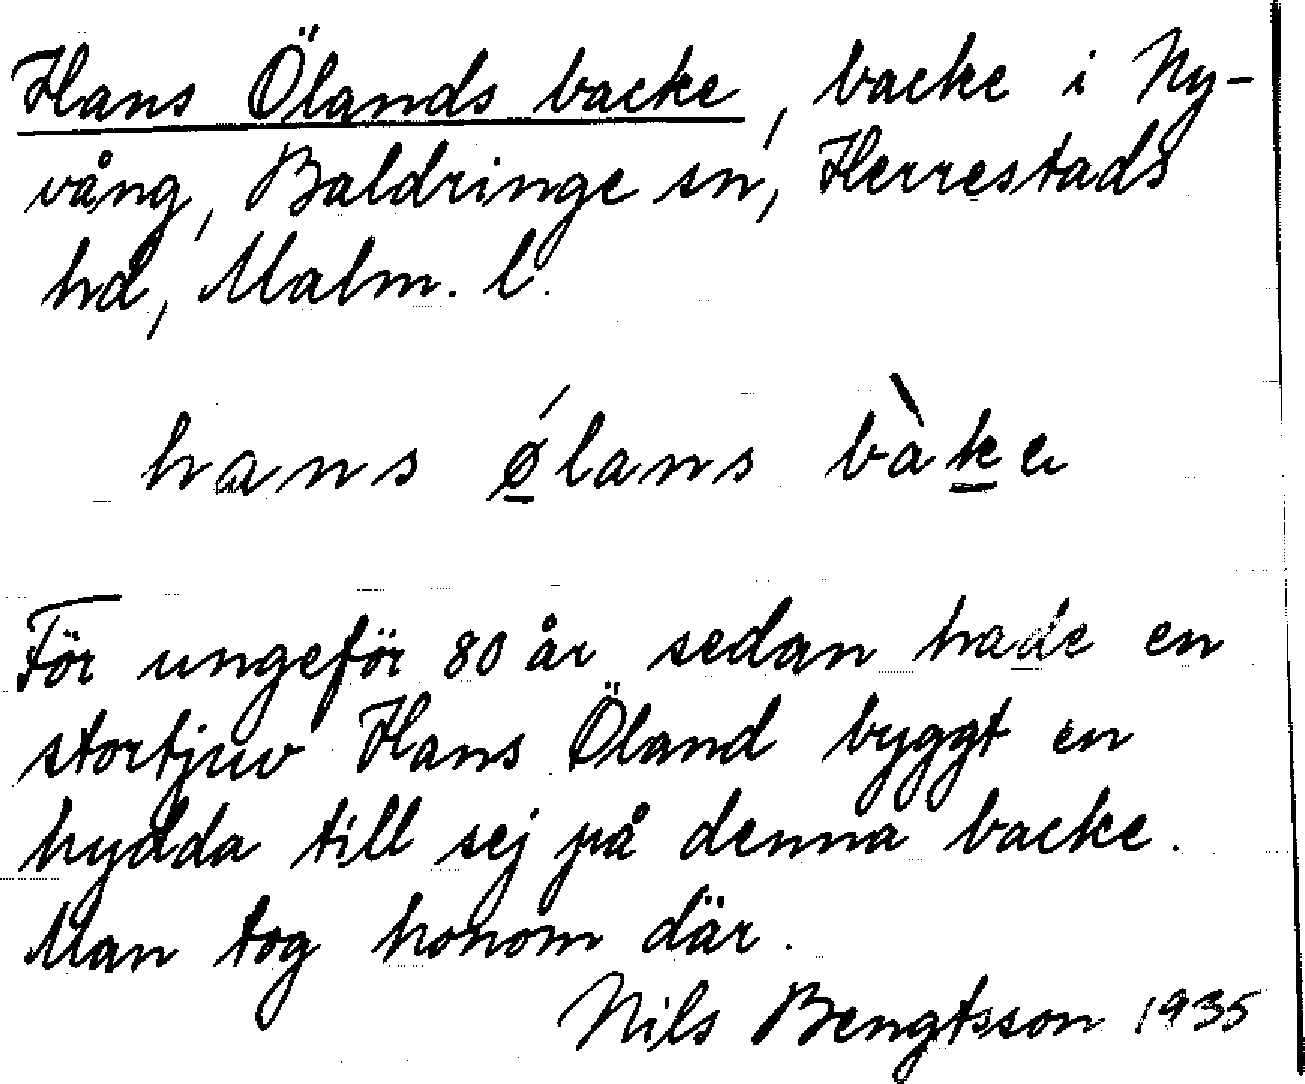 Hans Ölands backe, backe i Ny-
vång, Baldringe sn, Herrestads
hd, Malm. l.
hans ǿ̲lans bàk̲e
För ungeför 80 år sedan hade en
stortjuv Hans Öland byggt en
hydda till sej på denna backe.
Man tog honom där.
Nils Bengtsson 1935